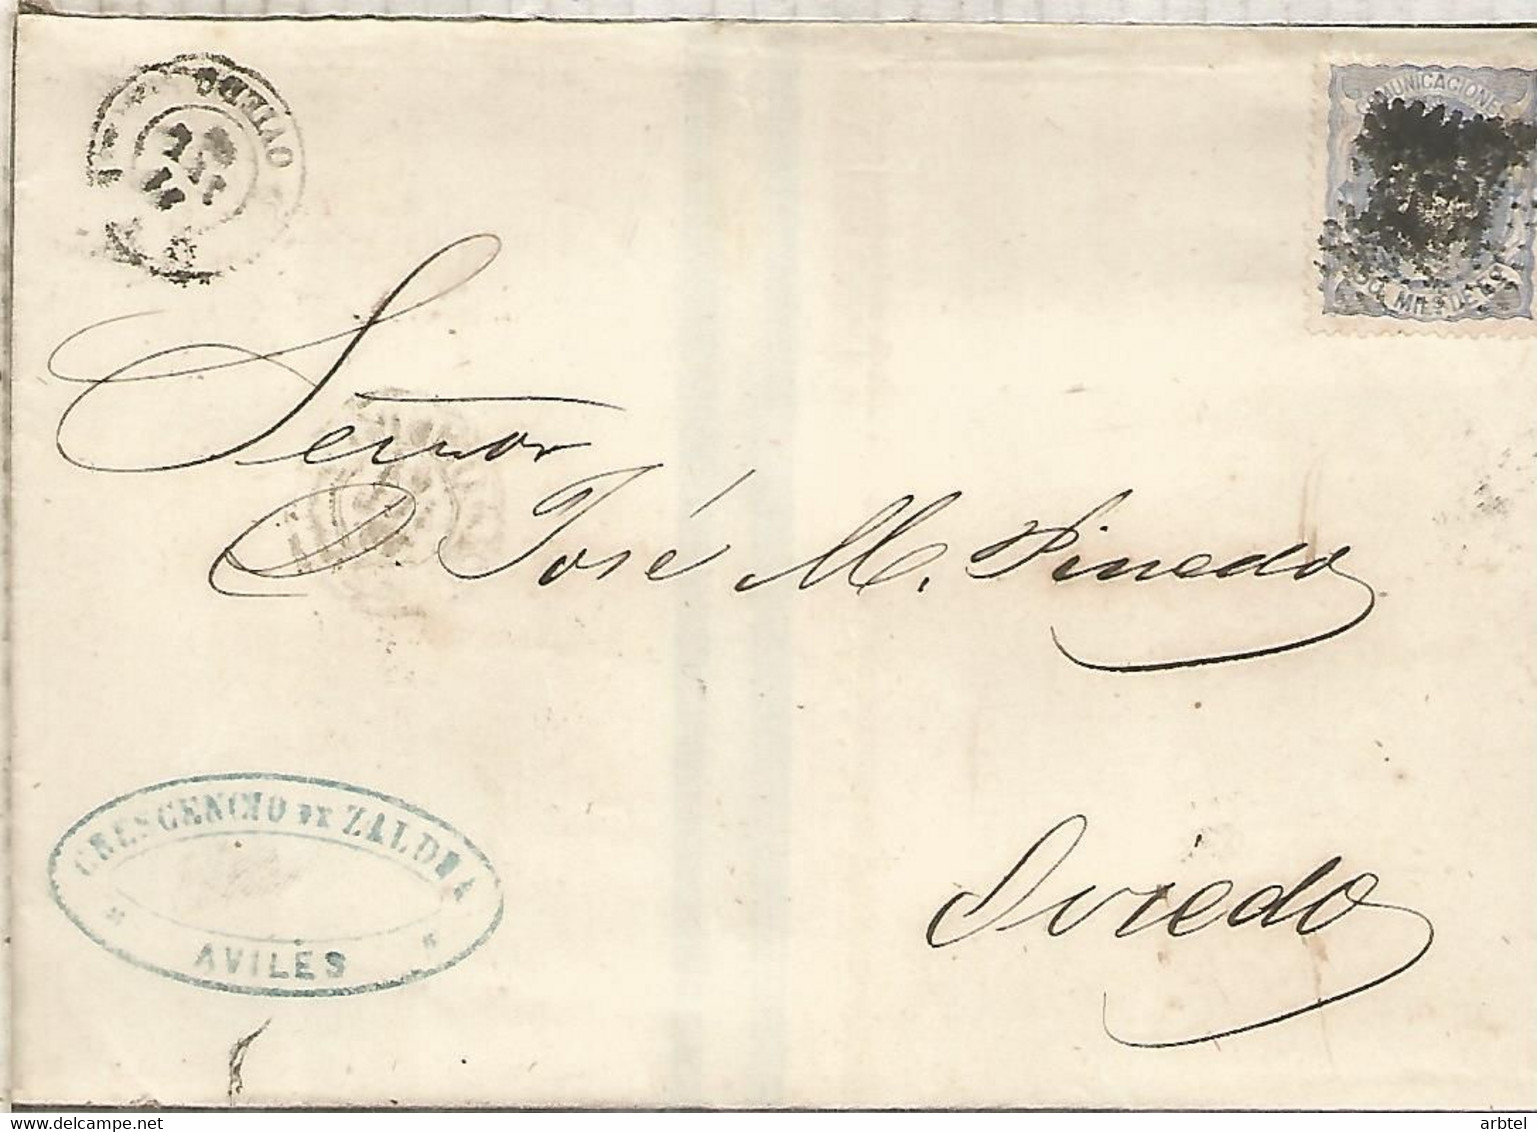 OVIEDO
COMUNICACIONES
50. MILS DE ESº
Señor
D. José M. Pinedo
Oviedo
CRESCENCIO DE ZALDUA
AVILÉS
www.delcampe.net
arbtel